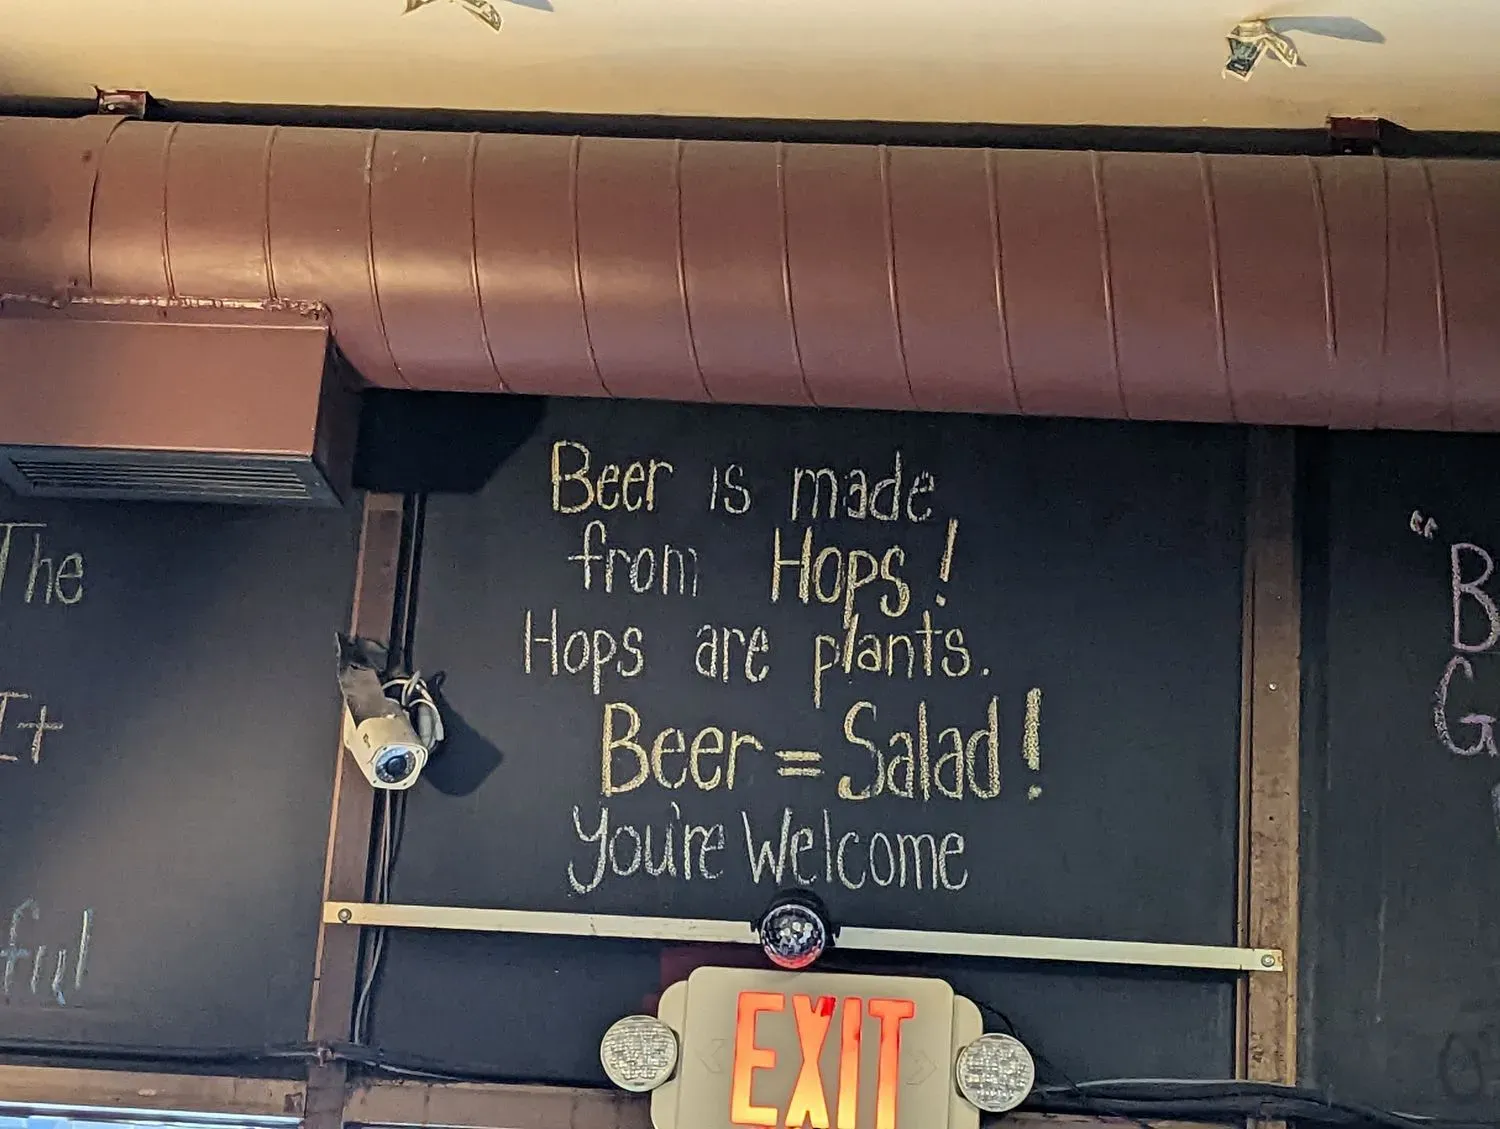 Beer is made
from Hops!
Hops are plants.
Beer = Salad!
You're Welcome
The
It
ful
"B
G
EXIT